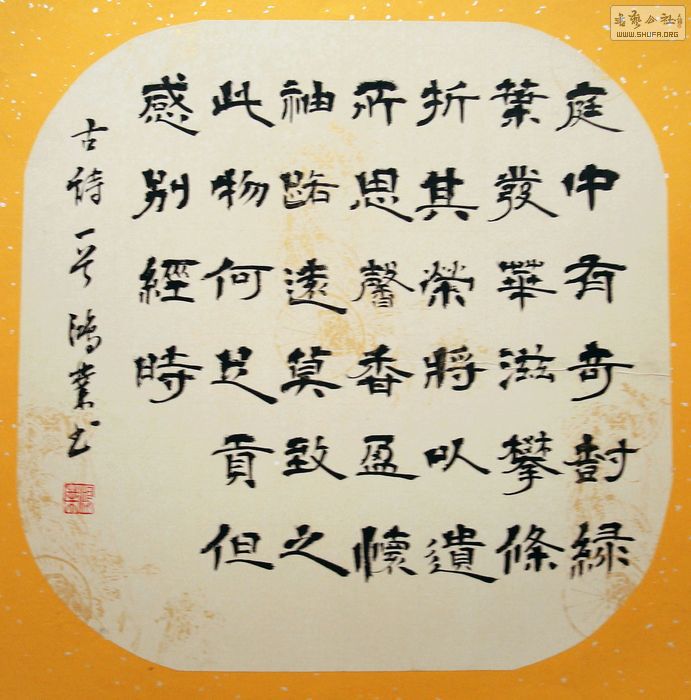 庭中有奇尌緑
葉發華滋攀條
折其榮將以遺
所思馨香盈懷
袖路遠莫致之
此物何足貢但
感別經時
古詩一首鴻業书
書藝公社
WWW.SHUFA.ORG